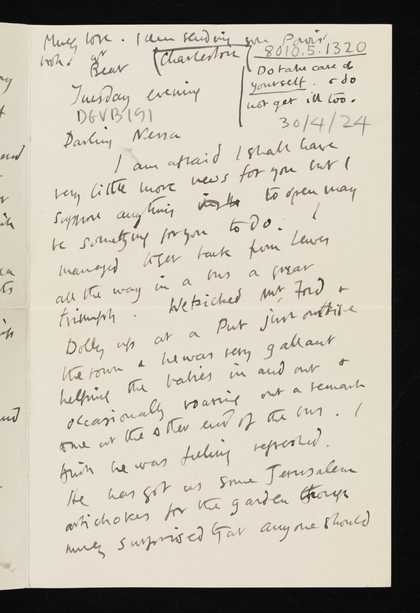 Much love. I am sending you Powis
book a
Bear
Charleston
8010.5.1320
Do take care of
yourself & do
not get ill too.
Tuesday evening
DGVB191
30/4/24
Darling Nessa
I am afraid I shall have
very little more news for you but I
suppose anything to open may
be something for you to do. I
managed to get back from Lewes
all the way in a bus a great
triumph. We picked Mr Ford &
Dolly up at a Pub just outside
the town & he was very gallant
helping the babies in and out &
occasionally roaring out a remark
to me at the other end of the bus. I
think he was feeling refreshed.
He has got us some Jerusalem
artichokes for the garden though
much surprised that anyone should